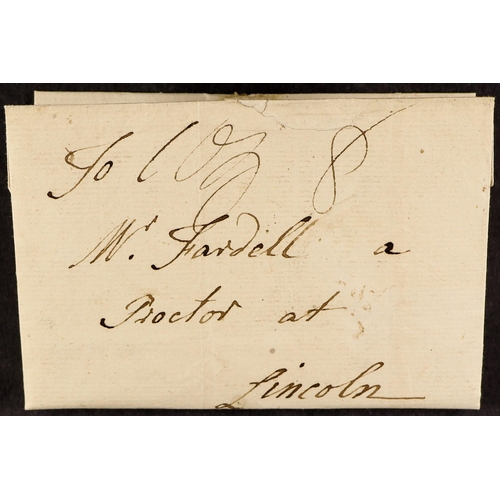 To 8
Mr. Fardell a
Proctor at
Lincoln